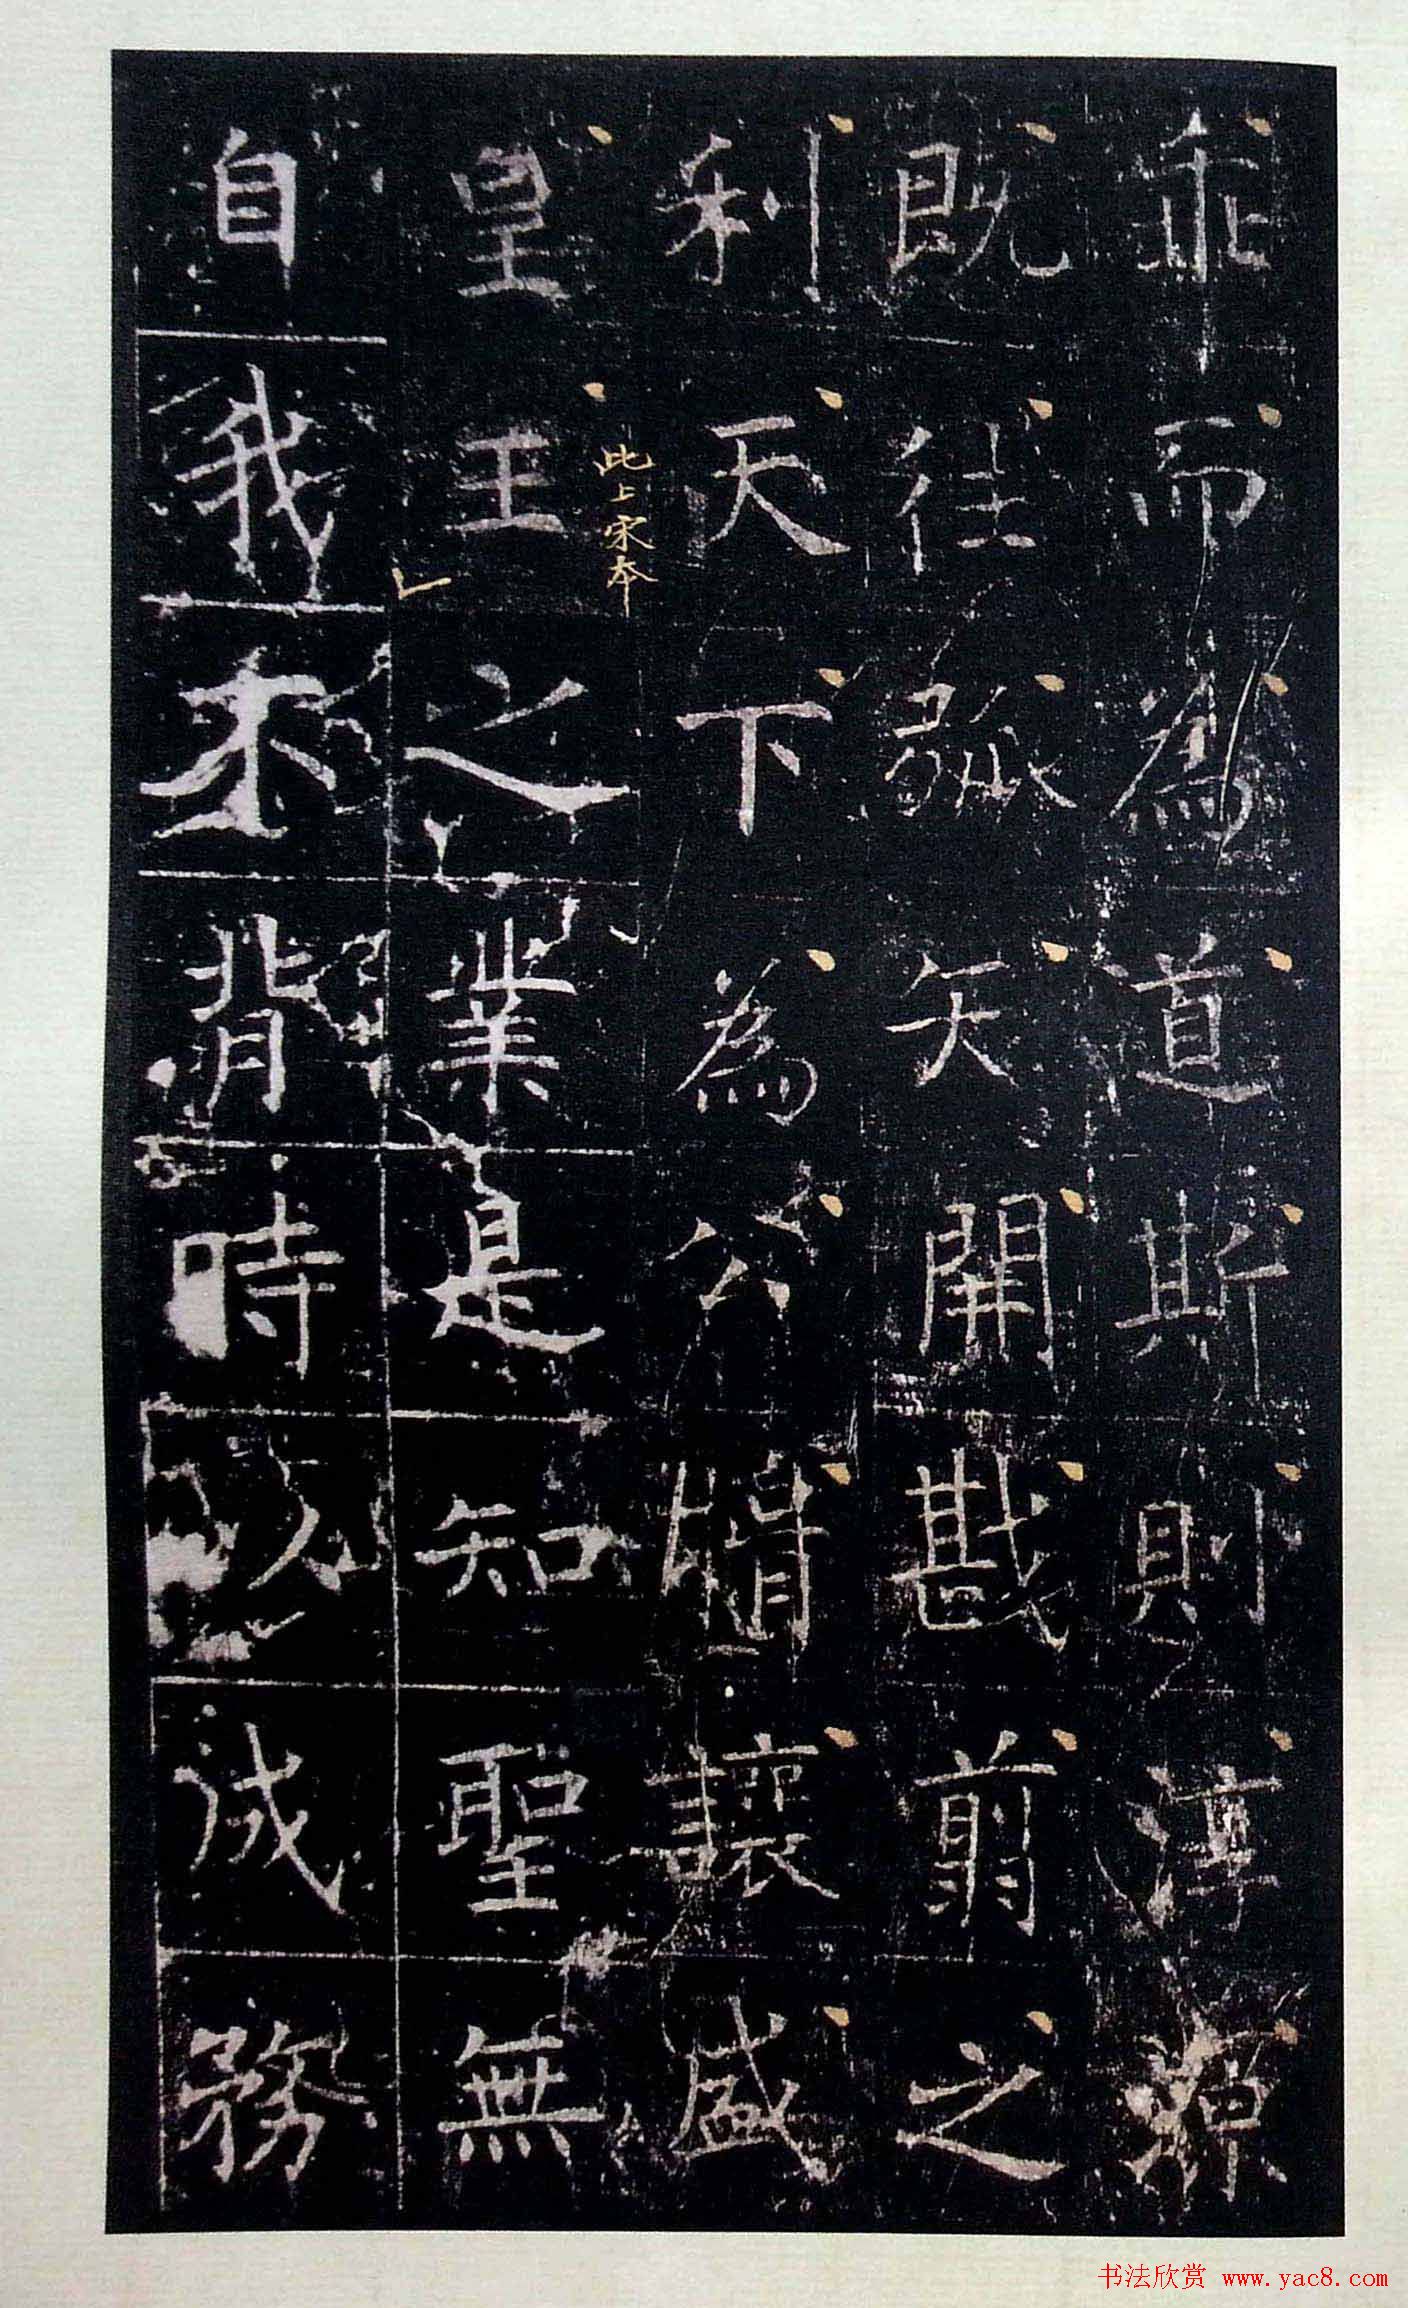 乖而為道斯則淳源
既往弧矢開戡翦之
利天下為公揖讓盛
皇王之業是知聖無
此上宋本
自我不背時以成務
书法欣赏 www.yac8.com